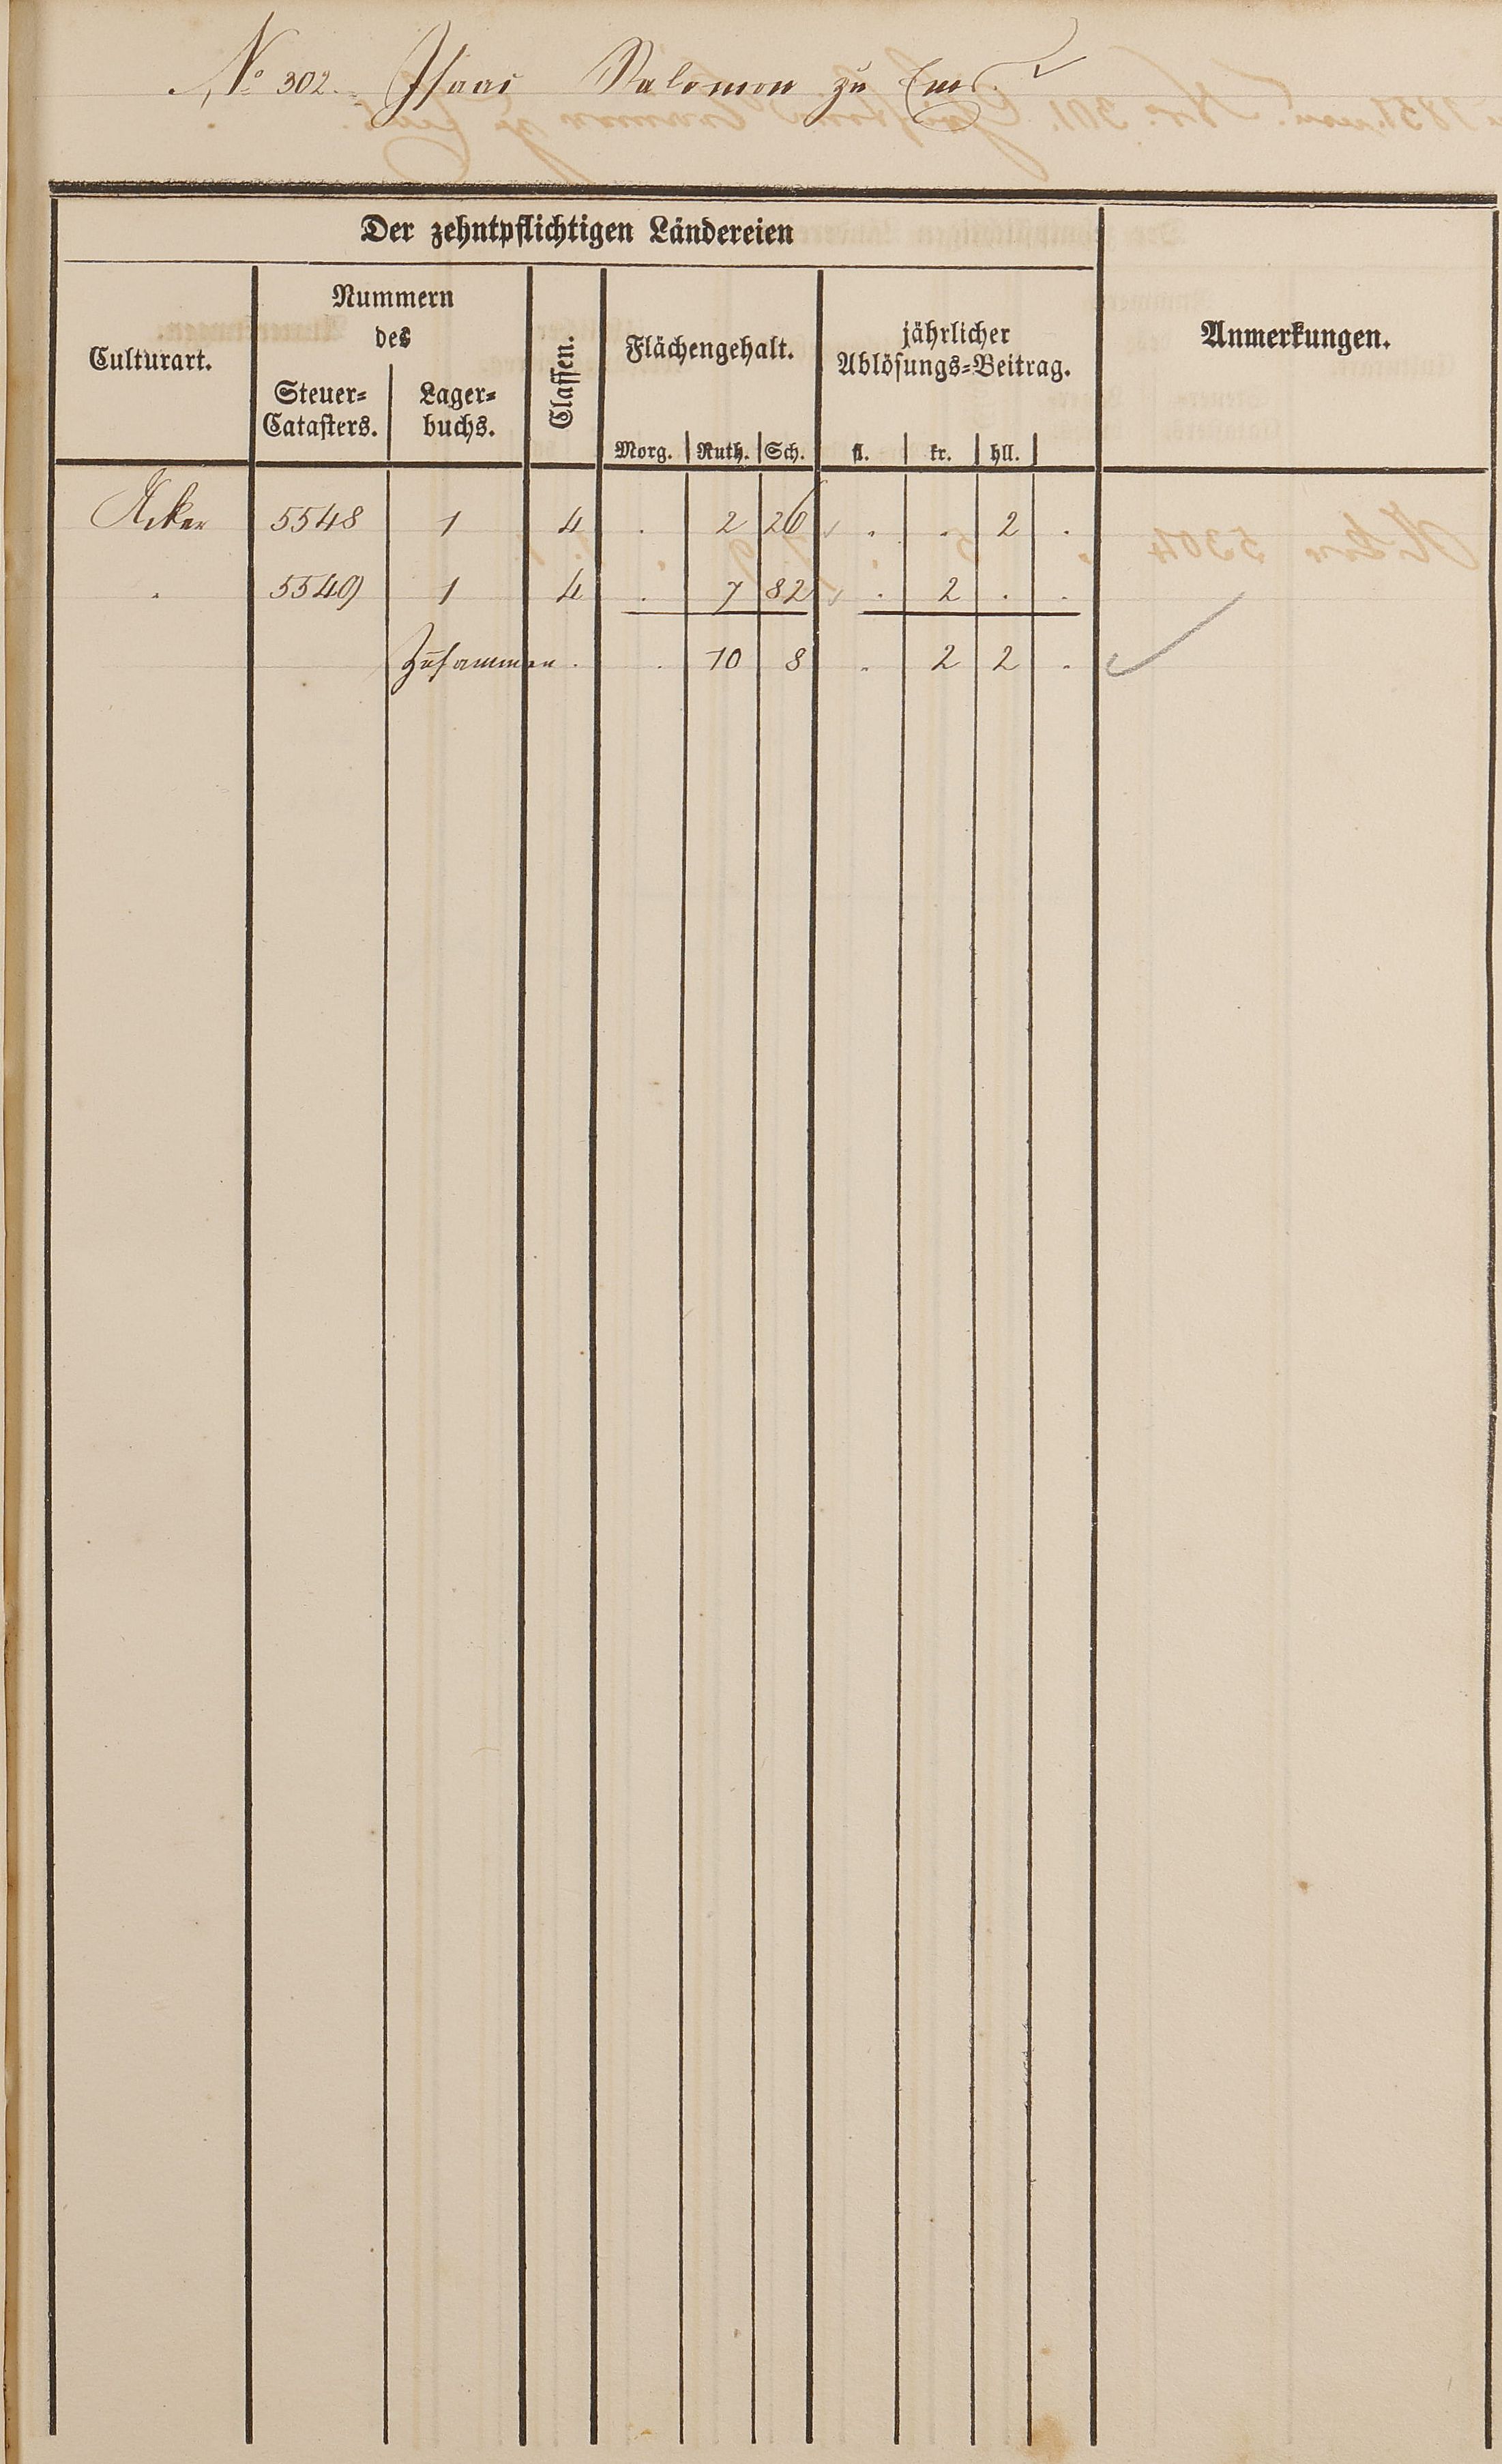 No 302. Isaac Salomon zu Ems.
Der zehntpflichtigen Ländereien
Culturart.
Nummern
des
Steuer=
Catasters.
Lager=
buchs.
Classen.
Flächengehalt.
Morg. Ruth. Sch.
jährlicher
Ablösungs=Beitrag.
fl. kr. hll.
Anmerkungen.
Acker 5548 1 4 . 2 26 . . 2 .
. 5549 1 4 . 7 82 . 2 . .
Zusammen . . 10 8 . 2 2 .